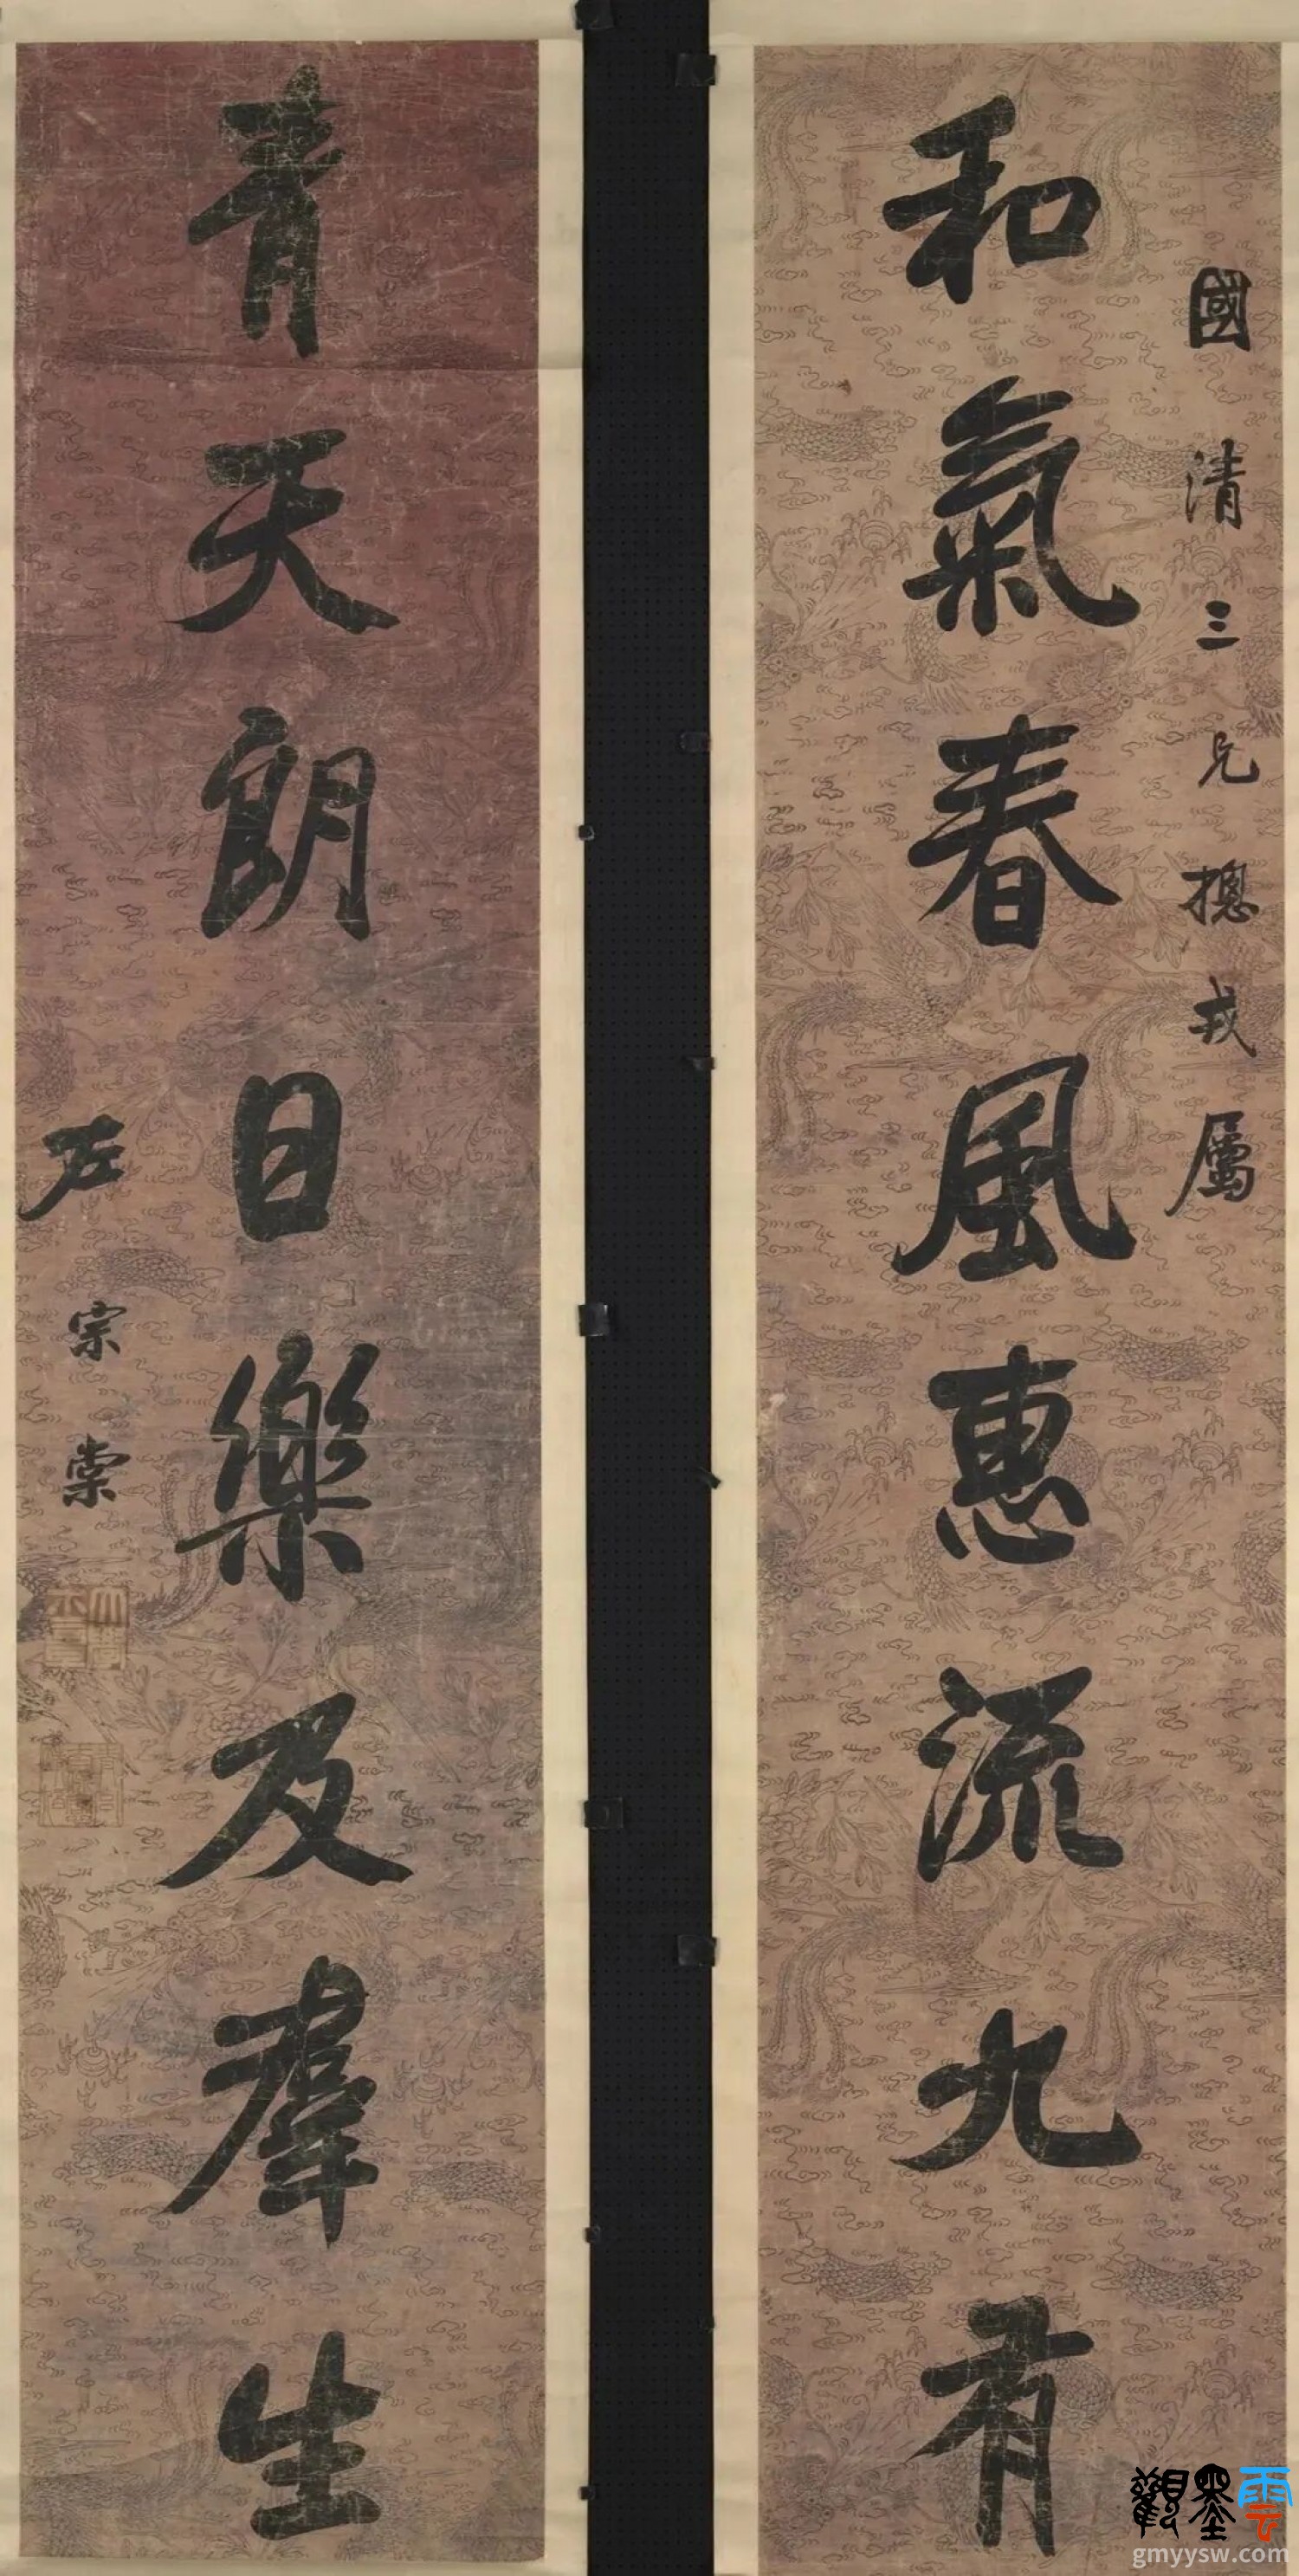 國清三兄摠戎屬
和氣春風惠流九有
青天朗日樂及羣生
左宗棠
觀墨雲
gmyysw.com